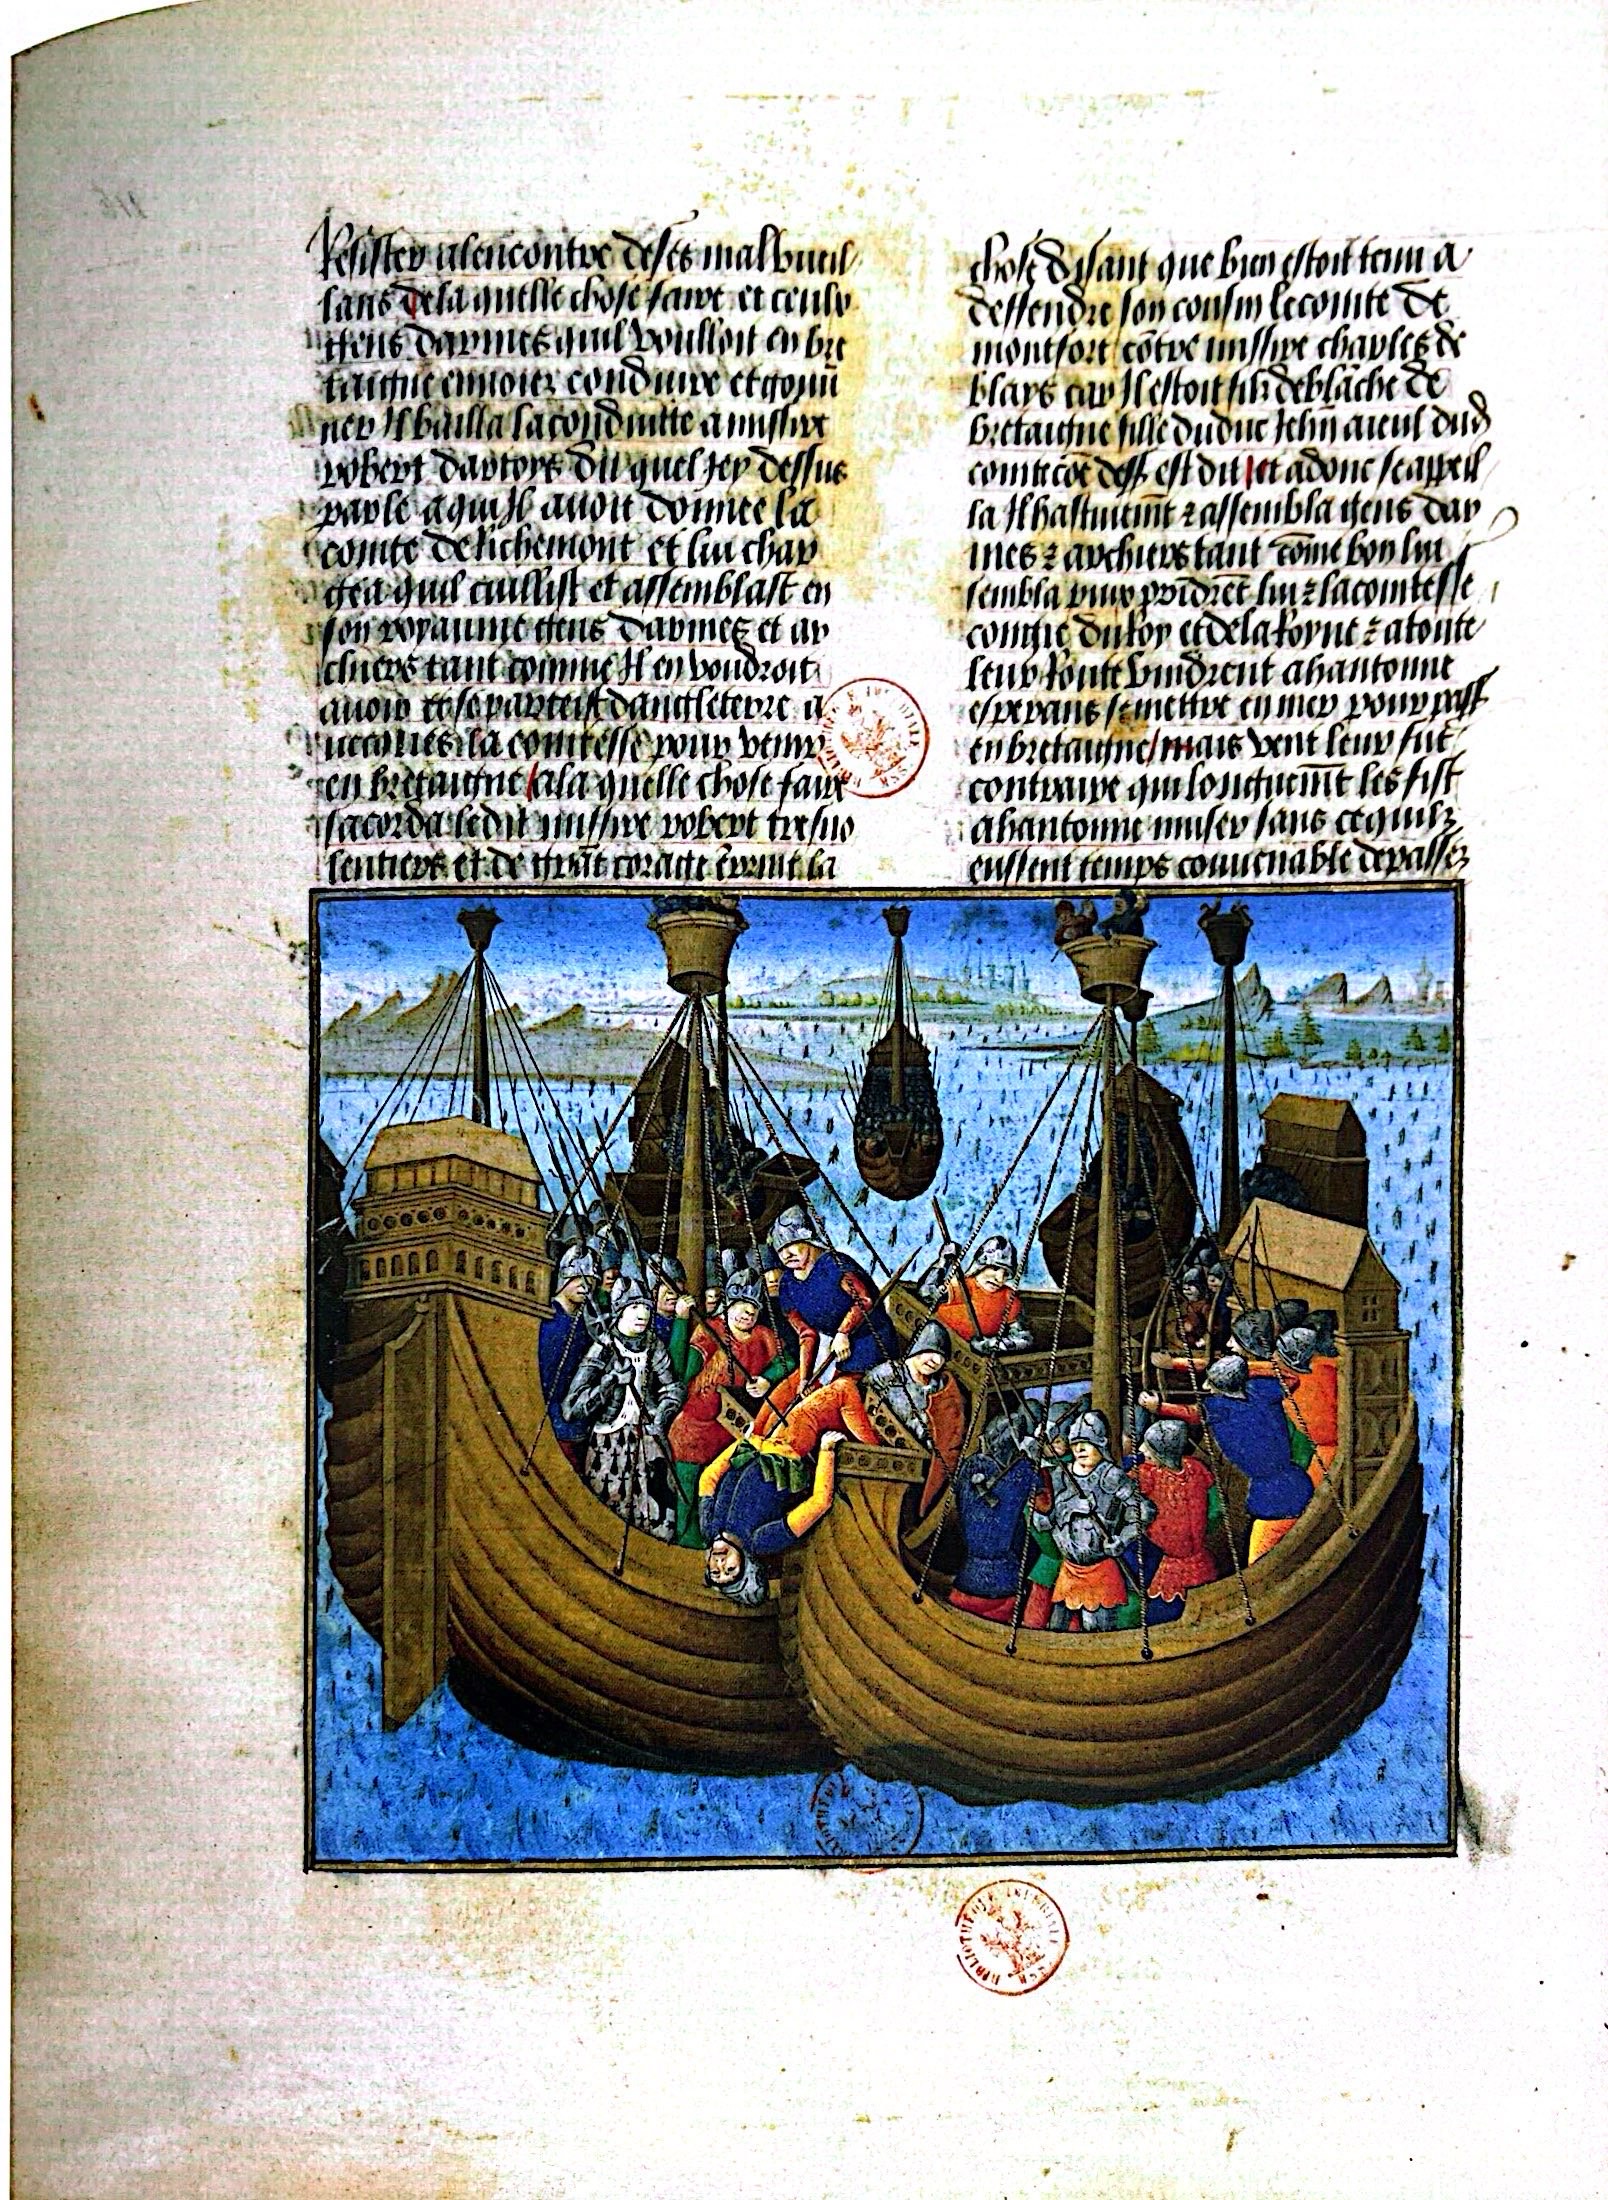 Resister alencontre de ses malvueil
lans de la quelle chose faire et ceulx
gens darmes quil voulloit en bre
taigne envoier conduire et gouv̄
ner Il bailla la conduitte a missire
robert dartoys du quel jey dessus
parle a qui Il avoit donnee la
comte de Richemont et lui char
gea quil cuillist et assemblast en
son royaume gens darmes et ar
chiers tant comme Il en voudroit
avoir et se parteist dangleterre a
vecques la comtesse pour venir
en bretaigne / a la quelle chose faire
sacorda ledit missire robert tresvo
lentiers et de grāt coraige la
chose disant que bien estoit tenu a
deffendre son cousin le comte de
montfort cōtre missire charles de
blays car Il estoit filz de blāche de
bretaigne fille du duc Jehn̄ aieul dud
comte cōe dess est dit / et adonc se appeil
la Il hastivem̄t ⁊ assembla gens dar
mes ⁊ archiers tant cōme bon lui
sembla puis prīdrēt lui ⁊ la comtesse
congie du Roy et de la Royne ⁊ a toute
leur Route vindrent a hantonne
esperans se mettre en mer pour pass
en bretaigne / mais vent leur fut
contraire qui longuem̄t les fist
a hantonne muser sans ce quilz
eussent temps couvenable de passer
BIBLIOTHÈQUE IMPÉRIALE MSS